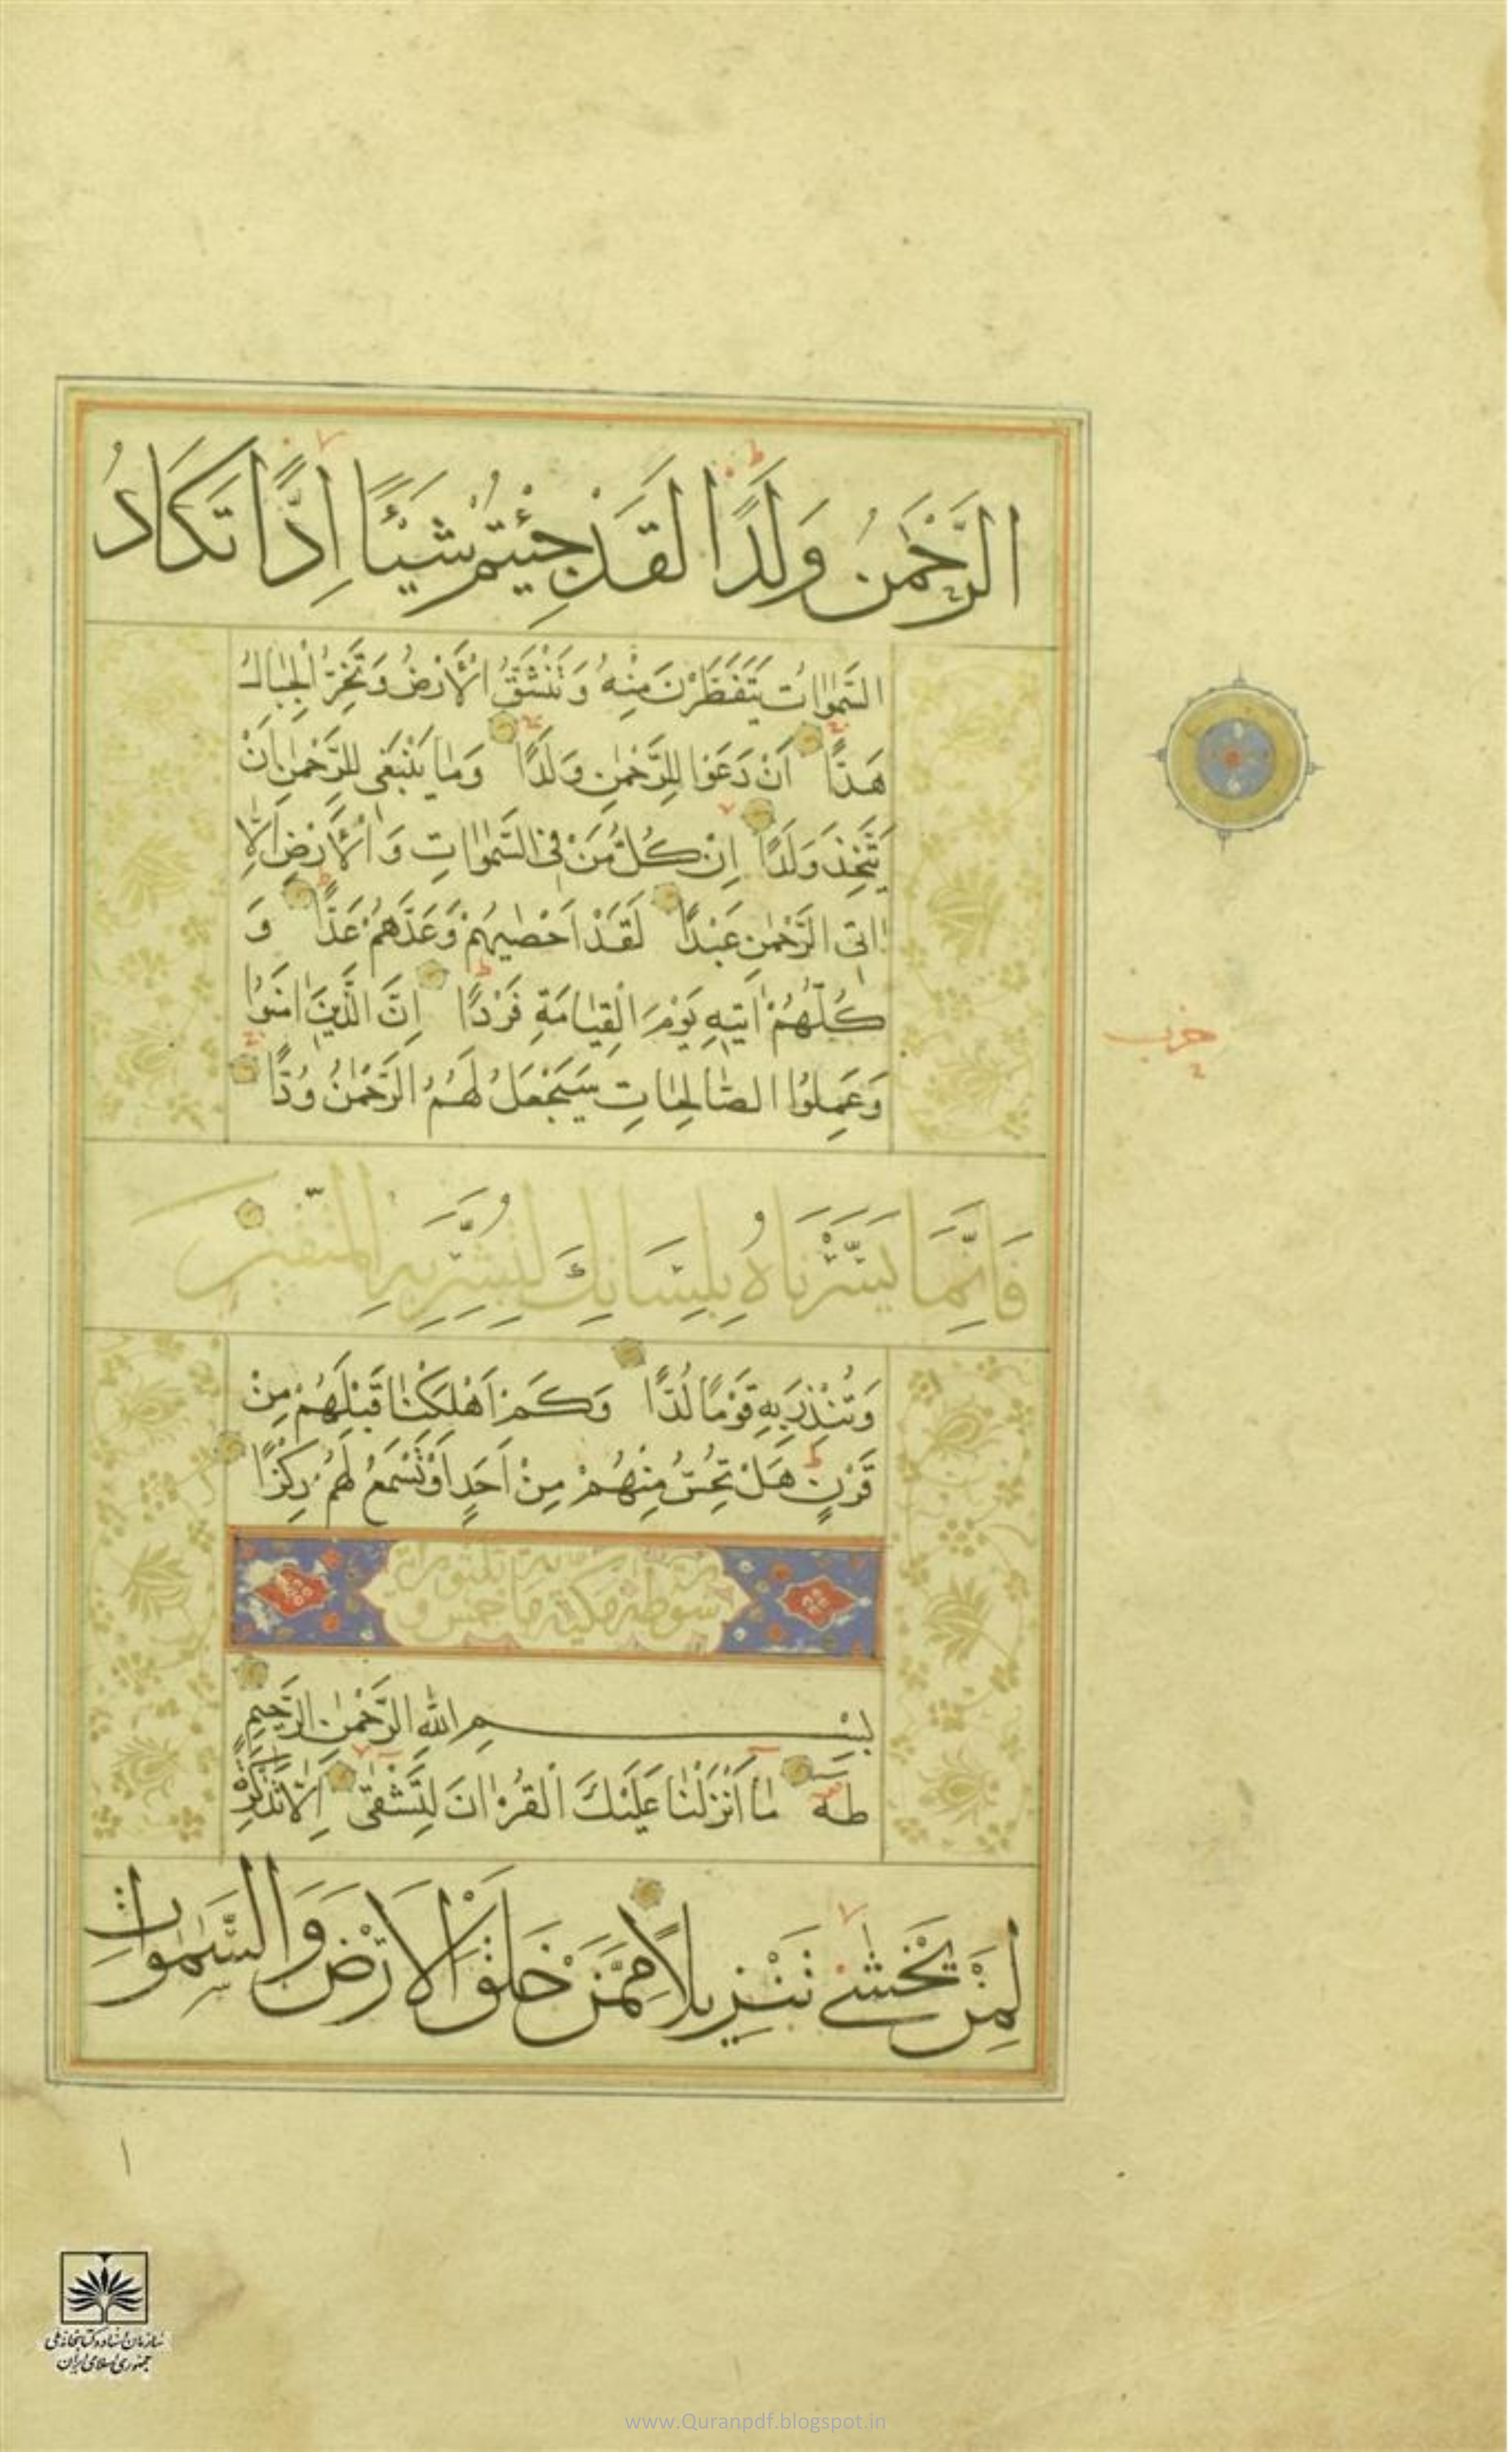 الرَّحْمٰنِ وَلَدًا لَقَدْ جِئْتُمْ شَيْئًا اِدًّا تَكَادُ
السَّمٰوَاتُ يَتَفَطَّرْنَ مِنْهُ وَتَنْشَقُّ الْاَرْضُ وَتَخِرُّ الْجِبَالُ
هَدًّا اَنْ دَعَوْا لِلرَّحْمٰنِ وَلَدًا وَمَا يَنْبَغِي لِلرَّحْمٰنِ اَنْ
يَتَّخِذَ وَلَدًا اِنْ كُلُّ مَنْ فِي السَّمٰوَاتِ وَالْاَرْضِ اِلَّا
اٰتِي الرَّحْمٰنِ عَبْدًا لَقَدْ اَحْصٰيهُمْ وَعَدَّهُمْ عَدًّا وَ
كُلُّهُمْ اٰتِيهِ يَوْمَ الْقِيَامَةِ فَرْدًا اِنَّ الَّذِينَ اٰمَنُوا
وَعَمِلُوا الصَّالِحَاتِ سَيَجْعَلُ لَهُمُ الرَّحْمٰنُ وُدًّا
حزب
فَاِنَّمَا يَسَّرْنَاهُ بِلِسَانِكَ لِتُبَشِّرَ بِهِ الْمُتَّقِينَ
وَتُنْذِرَ بِهِ قَوْمًا لُدًّا وَكَمْ اَهْلَكْنَا قَبْلَهُمْ مِنْ
قَرْنٍ هَلْ تُحِسُّ مِنْهُمْ مِنْ اَحَدٍ اَوْ تَسْمَعُ لَهُمْ رِكْزًا
بِسْمِ اللّٰهِ الرَّحْمٰنِ الرَّحِيمِ
طٰهٰ مَا اَنْزَلْنَا عَلَيْكَ الْقُرْاٰنَ لِتَشْقٰى اِلَّا تَذْكِرَةً
لِمَنْ يَخْشٰى تَنْزِيلًا مِمَّنْ خَلَقَ الْاَرْضَ وَالسَّمٰوَاتِ
١
سازمان اسناد و کتابخانه ملی
جمهوری اسلامی ایران
www.Quranpdf.blogspot.in